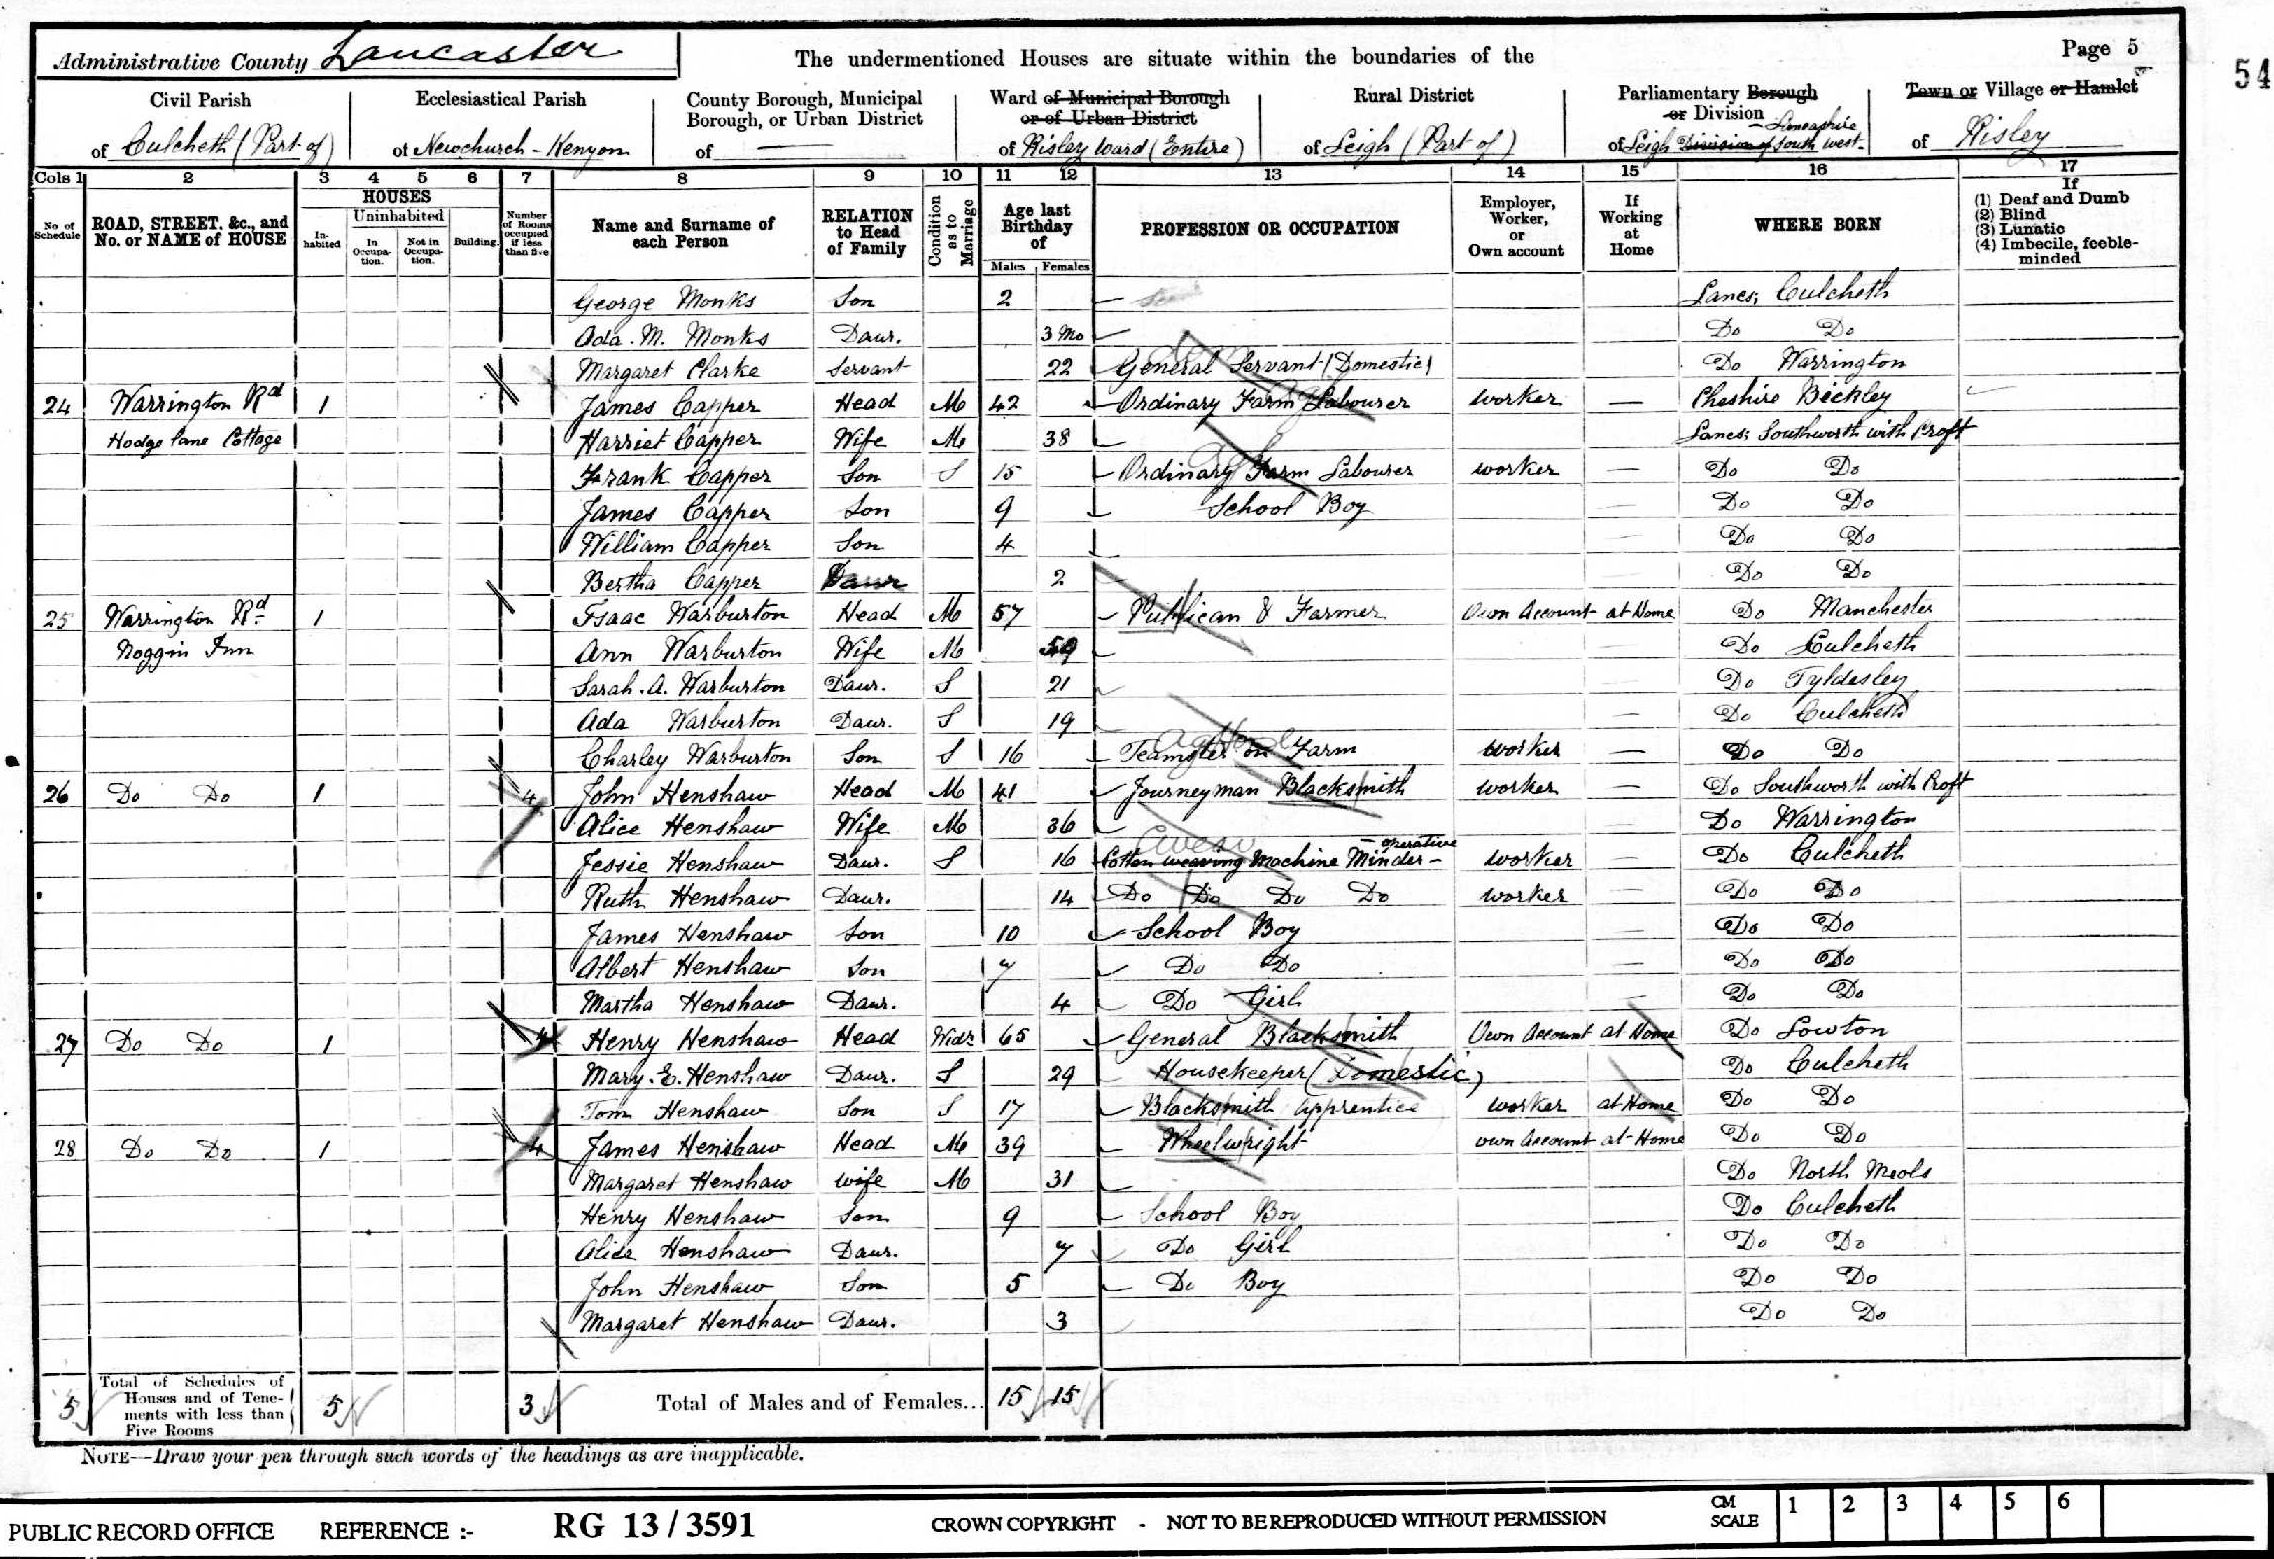 Administrative County Lancaster
The undermentioned Houses are situate within the boundaries of the
Page 5
54
Civil Parish of Culcheth (Part of)
Ecclesiastical Parish of Newchurch - Kenyon
County Borough, Municipal Borough, or Urban District of —
Ward of Municipal Borough or of Urban District of Risley Ward (Entire)
Rural District of Leigh (Part of)
Parliamentary Borough or Division of Leigh Division of South West - Lancashire
Town or Village or Hamlet of Risley
Cols 1 2 3 4 5 6 7 8 9 10 11 12 13 14 15 16 17
No of Schedule
ROAD, STREET, &c., and No. or NAME of HOUSE
HOUSES
Inhabited
Uninhabited
In Occupation.
Not in Occupation.
Building.
Number of Rooms occupied if less than five
Name and Surname of each Person
RELATION to Head of Family
Condition as to Marriage
Age last Birthday of
Males Females
PROFESSION OR OCCUPATION
Employer, Worker, or Own account
If Working at Home
WHERE BORN
If
(1) Deaf and Dumb
(2) Blind
(3) Lunatic
(4) Imbecile, feeble-minded
George Monks Son 2 Lancs; Culcheth
Ada. M. Monks Daur. 3 Mo Do Do
Margaret Clarke Servant 22 General Servant (Domestic) Do Warrington
24 Warrington Rd 1 James Capper Head M 42 Ordinary Farm Labourer worker — Cheshire Bickley
Hodge lane Cottage Harriet Capper Wife M 38 Lancs; Southworth with Croft
Frank Capper Son S 15 Ordinary Farm Labourer worker — Do Do
James Capper Son 9 School Boy — Do Do
William Capper Son 4 — Do Do
Bertha Capper Daur 2 — Do Do
25 Warrington Rd 1 Isaac Warburton Head M 57 Publican & Farmer Own Account at Home Do Manchester
Noggin Inn Ann Warburton Wife M 59 Do Culcheth
Sarah. A. Warburton Daur. S 21 Do Tyldesley
Ada Warburton Daur. S 19 — Do Culcheth
Charley Warburton Son S 16 Teamster on Farm worker — Do Do
26 Do Do 1 4 John Henshaw Head M 41 Journeyman Blacksmith worker — Do Southworth with Croft
Alice Henshaw Wife M 36 Do Warrington
Jessie Henshaw Daur. S 16 Cotton weaving Machine Minder - operative worker — Do Culcheth
Ruth Henshaw Daur. 14 Do Do Do Do worker — Do Do
James Henshaw Son 10 School Boy — Do Do
Albert Henshaw Son 7 Do Do — Do Do
Martha Henshaw Daur. 4 Do Girl — Do Do
27 Do Do 1 4 Henry Henshaw Head Widr 65 General Blacksmith Own Account at Home Do Lowton
Mary. E. Henshaw Daur. S 29 Housekeeper (Domestic) Do Culcheth
Tom Henshaw Son S 17 Blacksmith apprentice worker at Home Do Do
28 Do Do 1 4 James Henshaw Head M 39 Wheelwright own Account at Home Do Do
Margaret Henshaw wife M 31 Do North Meols
Henry Henshaw Son 9 School Boy Do Culcheth
Alice Henshaw Daur. 7 Do Girl Do Do
John Henshaw Son 5 Do Boy Do Do
Margaret Henshaw Daur. 3 Do Do
5 Total of Schedules of Houses and of Tenements with less than Five Rooms 5 3 Total of Males and of Females... 15 15
NOTE—Draw your pen through such words of the headings as are inapplicable.
PUBLIC RECORD OFFICE REFERENCE :- RG 13 / 3591 CROWN COPYRIGHT - NOT TO BE REPRODUCED WITHOUT PERMISSION CM SCALE 1 2 3 4 5 6